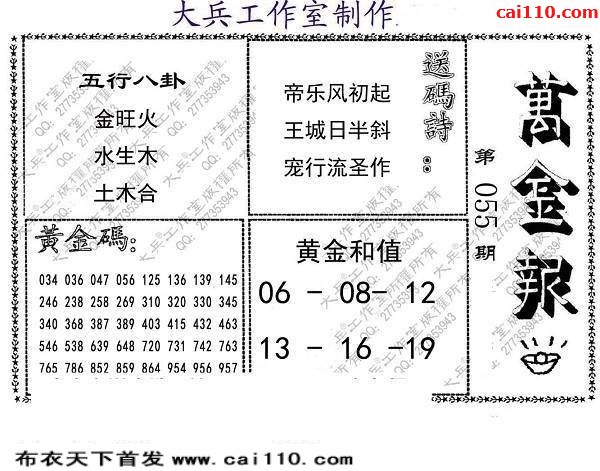 大兵工作室制作
cai110.com
五行八卦
金旺火
水生木
土木合
送碼詩：
帝乐风初起
王城日半斜
宠行流圣作
萬金報
第055期
黃金碼：
034 036 047 056 125 136 139 145
246 238 258 269 310 320 330 345
340 368 387 389 403 415 432 463
546 538 639 648 720 731 742 763
765 786 852 859 864 924 956 957
黄金和值
06 - 08- 12
13 - 16 -19
大兵®工作室版權所有
QQ：277353943
布衣天下首发 www.cai110.com